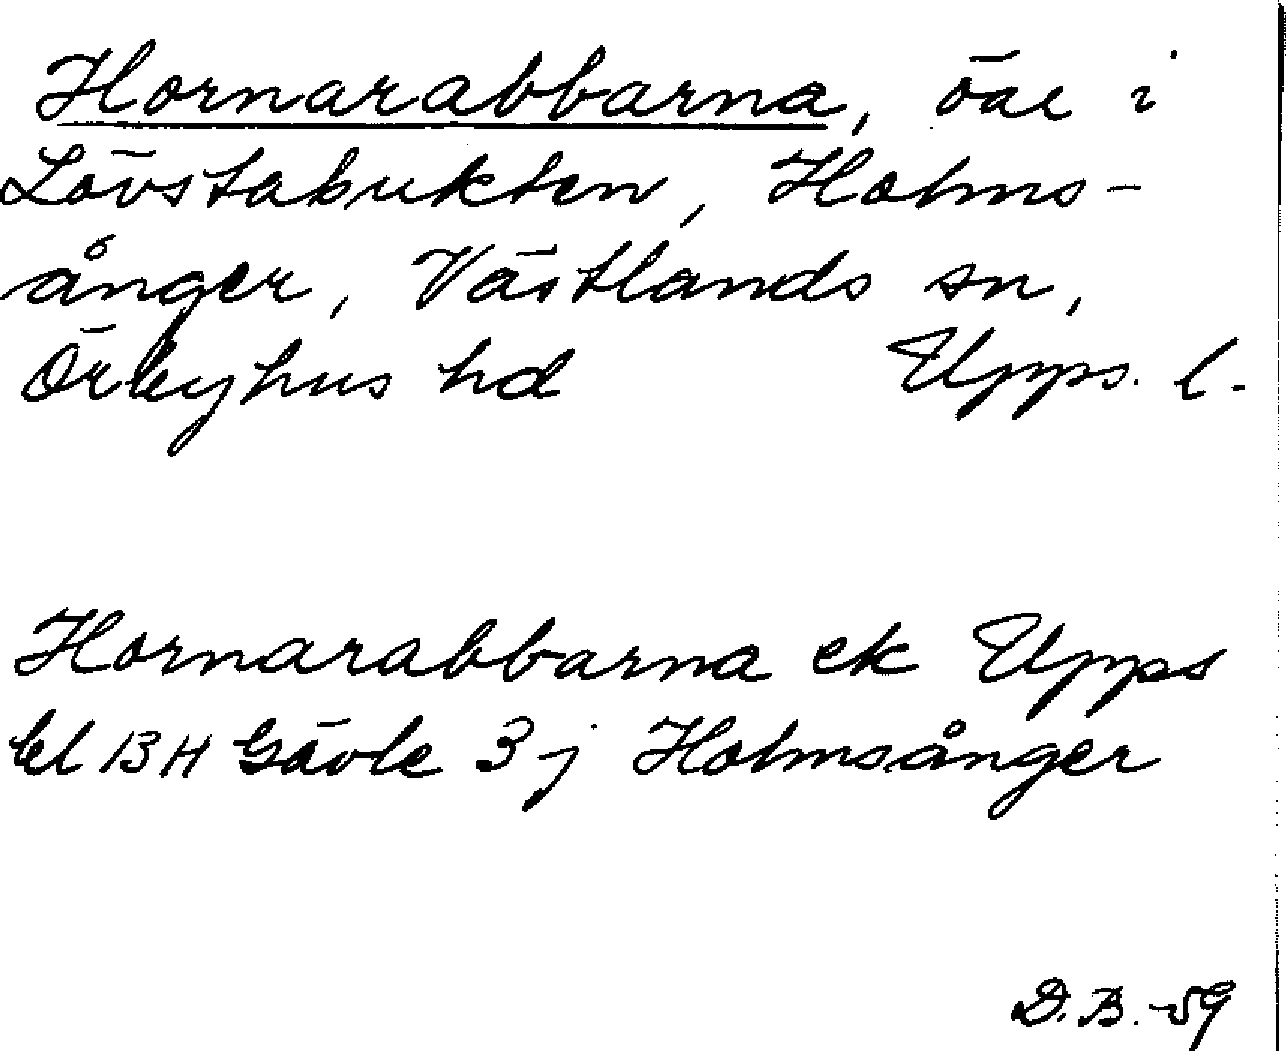 Hornarabbarna, öar i
Lövstabukten, Holms-
ånger, Västlands sn,
Örbyhus hd Upps. l.
Hornarabbarna ek Upps
bl 13 H Gävle 3 j Holmsånger
D.B. -59